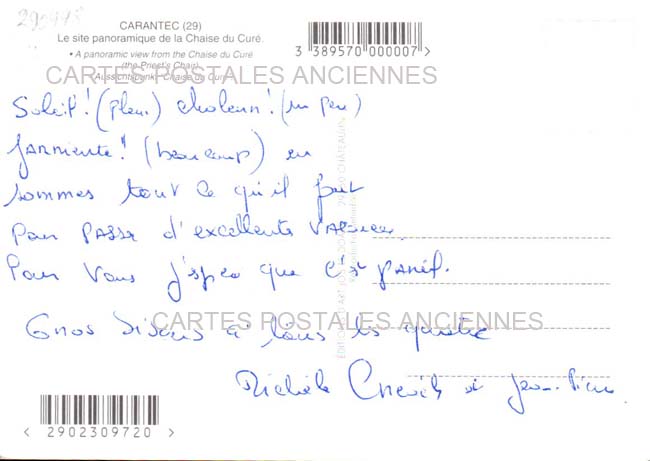 290978
CARANTEC (29)
Le site panoramique de la Chaise du Curé.
• A panoramic view from the Chaise du Curé
(the Priest's Chair).
Aussichtsbank "Chaise du Curé"
3 389570 000007 >
CARTES POSTALES ANCIENNES
Soleil! (plein) chaleur! (un peu)
farniente!! (beaucoup) en
sommes tout ce qu'il faut
Pour PASSER d'excellente VACANCES.
Pour Vous j'espère que c'est pareil.
Gros bisous à tous les quatre
CARTES POSTALES ANCIENNES
Michèle et Jean-Pierre
< 2902309720 >